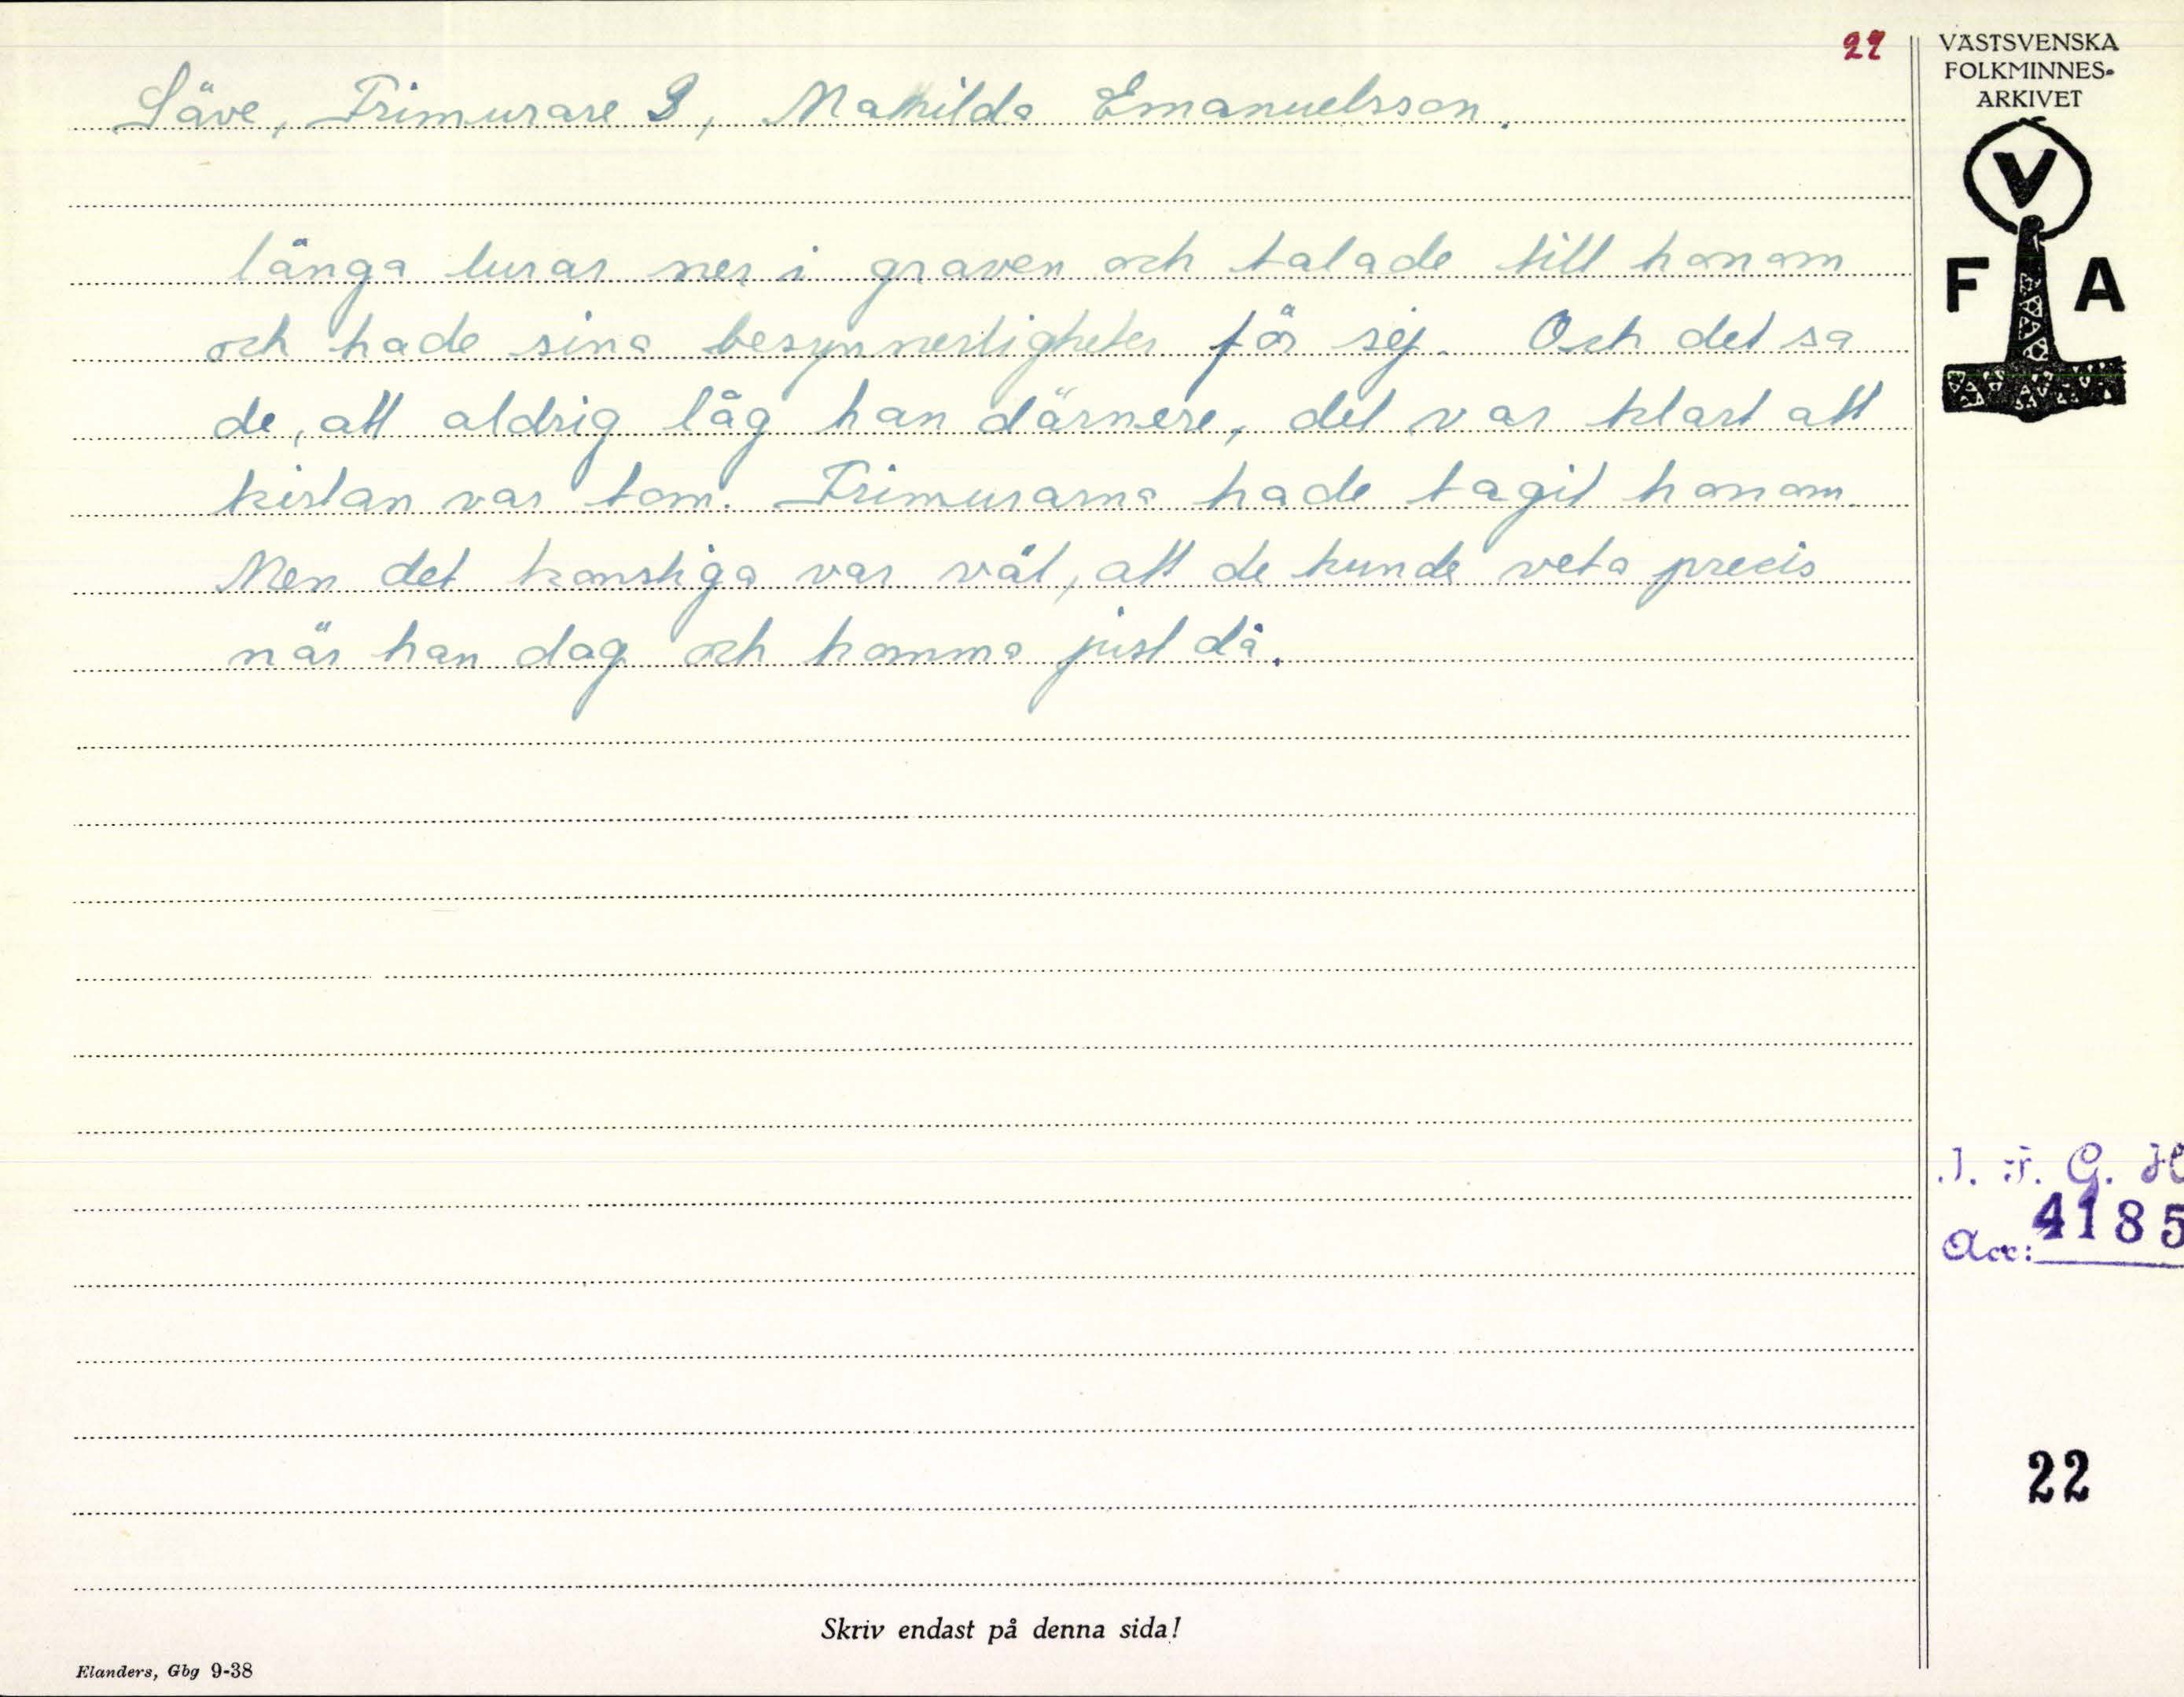 22
Säve, Frimurare 3, Mathilda Emanuelsson.
långa lurar ner i graven och talade till honom
och hade sina besynnerligheter för sej. Och det sa
de, att aldrig låg han därnere, det var klart att
kistan var tom. Frimurarna hade tagit honom.
Men det konstiga var väl, att de kunde veta precis
när han dog och komma just då.
VÄSTSVENSKA
FOLKMINNES-
ARKIVET
V
F A
I. F. G. H
Acc: 4185
22
Skriv endast på denna sida!
Elanders, Gbg 9-38